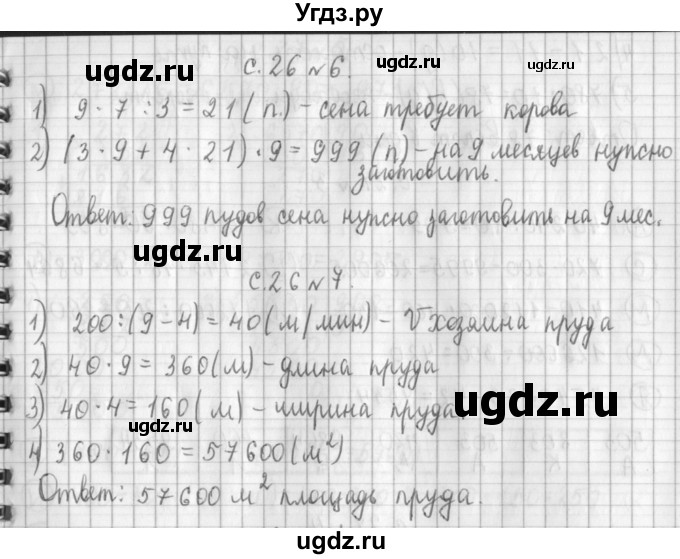 Угдз.ру
ugdz.ru ugdz.ru ugdz.ru
с. 26 №6.
1) 9 · 7 : 3 = 21 (п.) – сена требует корова
2) (3 · 9 + 4 · 21) · 9 = 999 (п) – на 9 месяцев нужно
заготовить.
Ответ: 999 пудов сена нужно заготовить на 9 мес.
ugdz.ru ugdz.ru
с. 26 №7.
1) 200 : (9 – 4) = 40 (м/мин) – V хозяина пруда
2) 40 · 9 = 360 (м) – длина пруда
ugdz.ru
3) 40 · 4 = 160 (м) – ширина пруда.
ugdz.ru
4) 360 · 160 = 57600 (м²)
Ответ: 57600 м² площадь пруда.
ugdz.ru ugdz.ru
ugdz.ru